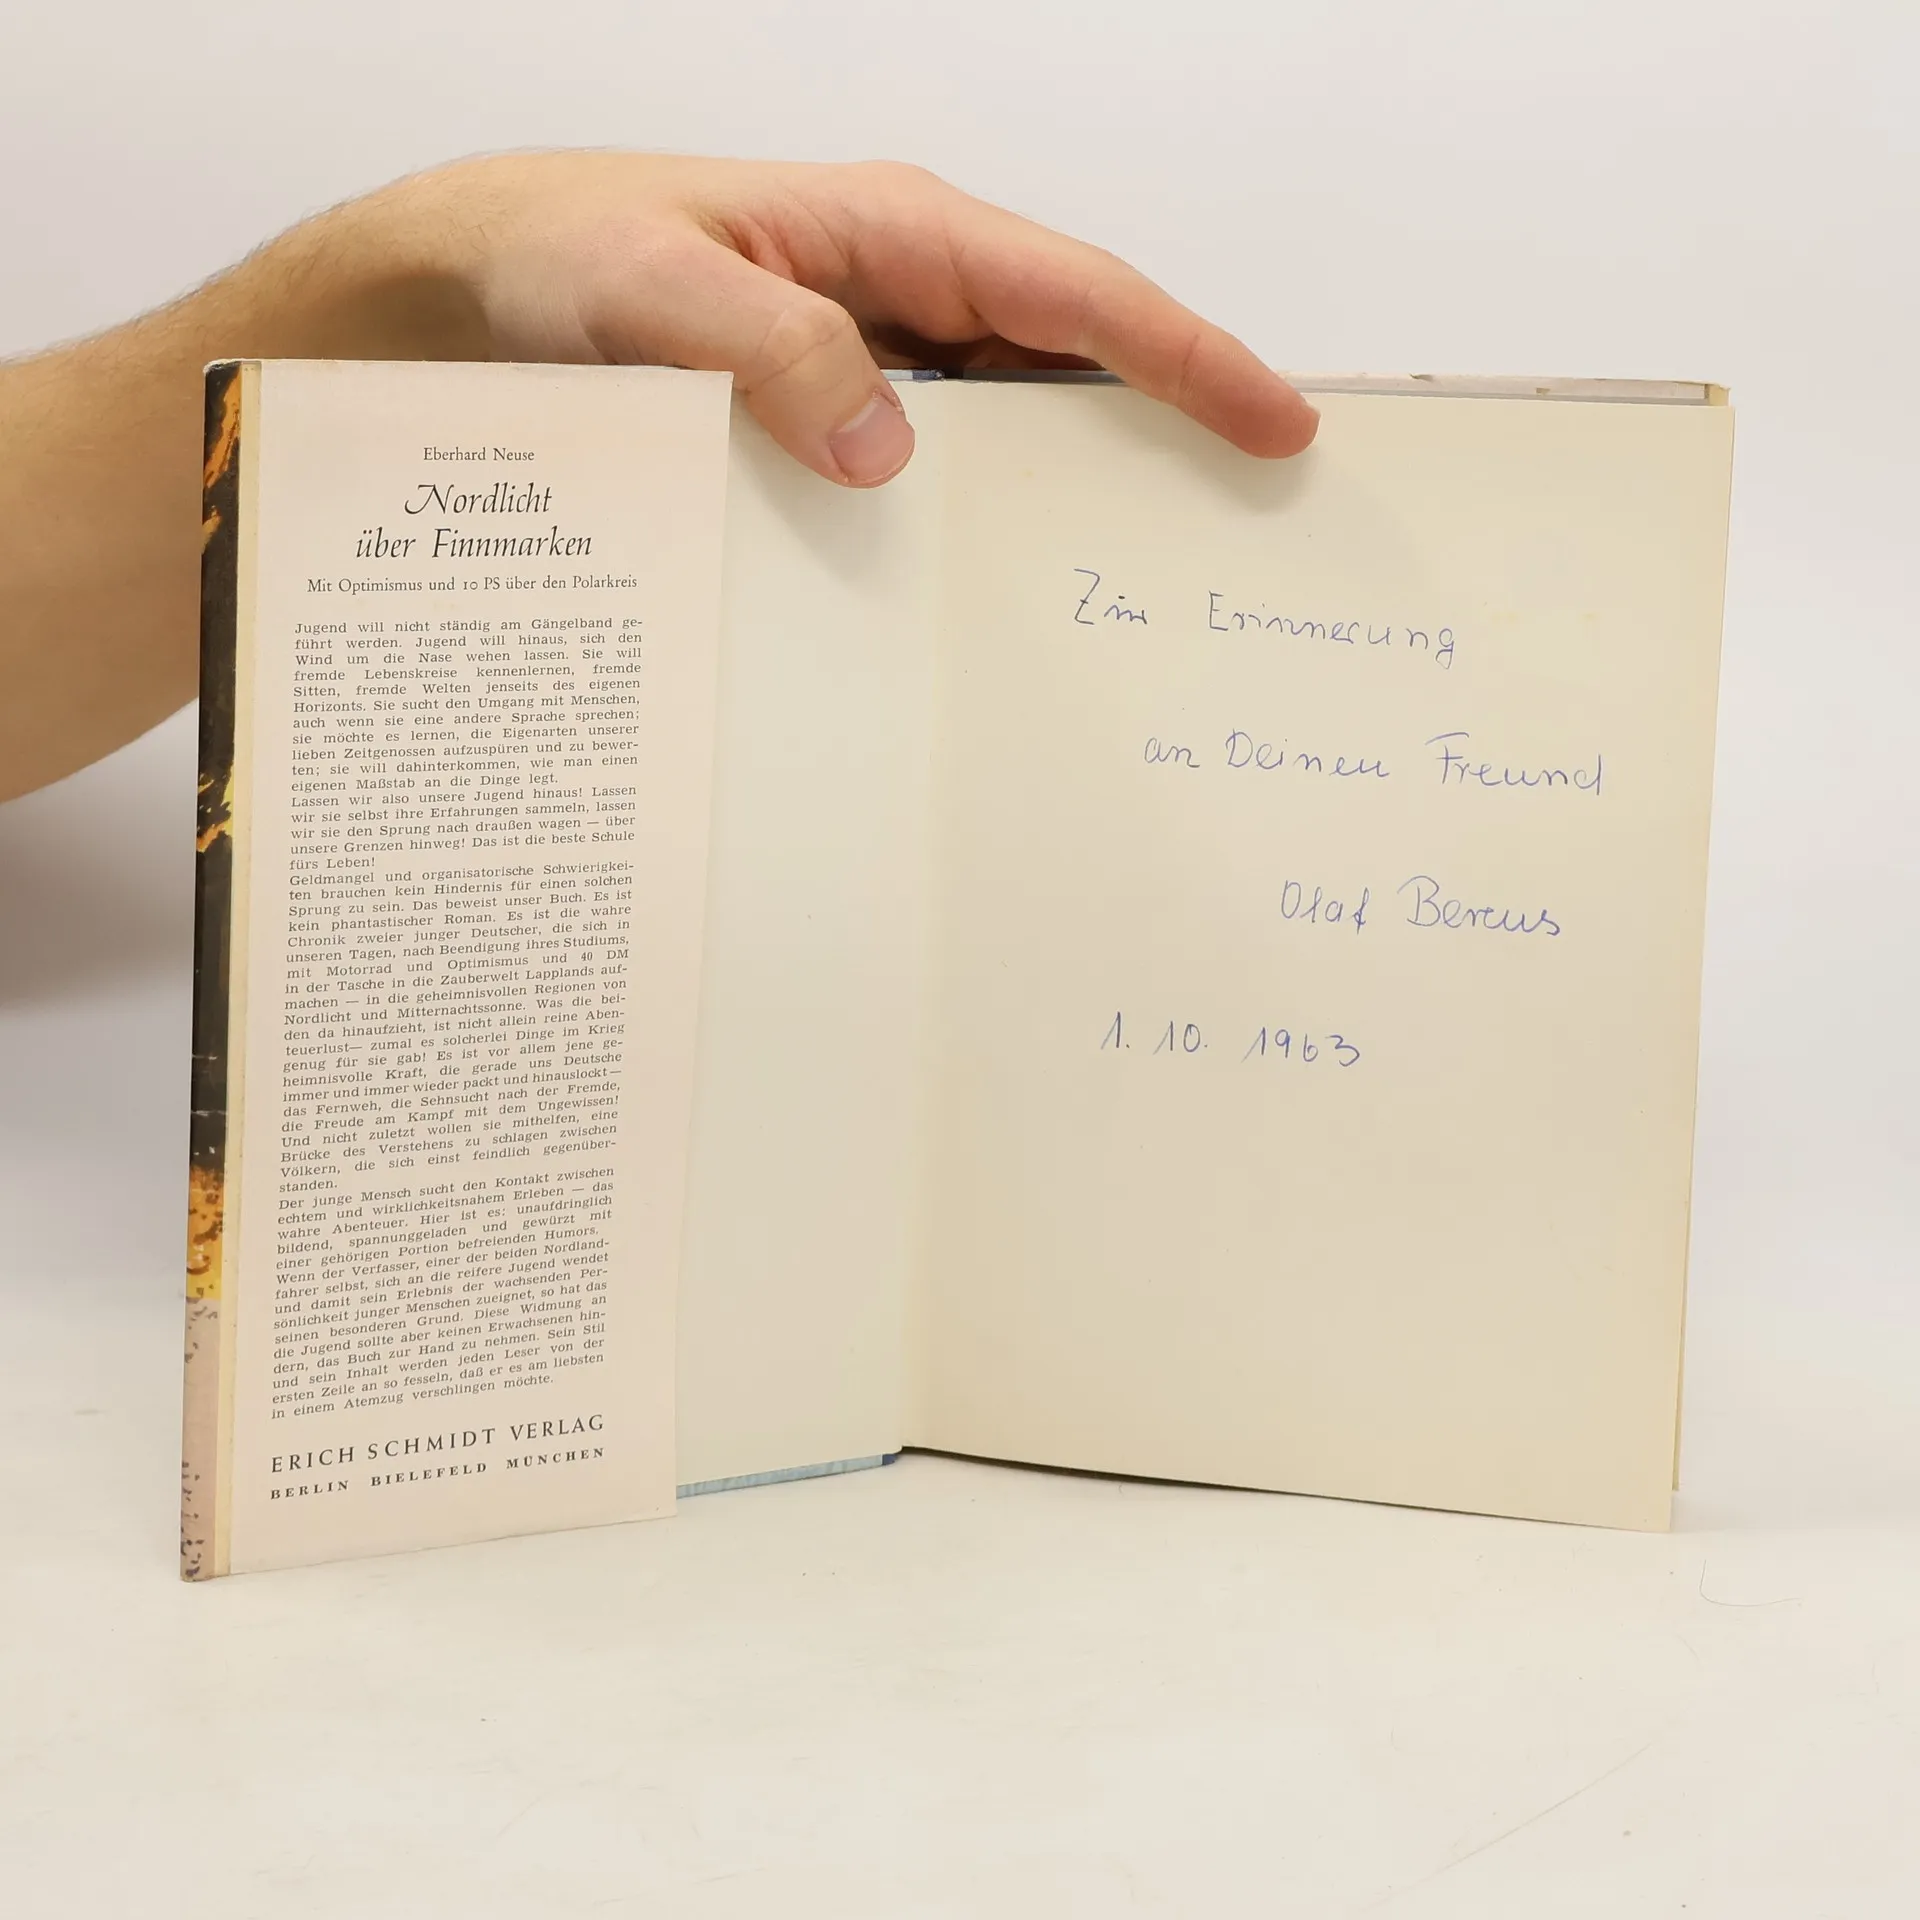 Eberhard Neuse
Nordlicht
über Finnmarken
Mit Optimismus und 10 PS über den Polarkreis
Jugend will nicht ständig am Gängelband ge-
führt werden. Jugend will hinaus, sich den
Wind um die Nase wehen lassen. Sie will
fremde Lebenskreise kennenlernen, fremde
Sitten, fremde Welten jenseits des eigenen
Horizonts. Sie sucht den Umgang mit Menschen,
auch wenn sie eine andere Sprache sprechen;
sie möchte es lernen, die Eigenarten unserer
lieben Zeitgenossen aufzuspüren und zu bewer-
ten; sie will dahinterkommen, wie man einen
eigenen Maßstab an die Dinge legt.
Lassen wir also unsere Jugend hinaus! Lassen
wir sie selbst ihre Erfahrungen sammeln, lassen
wir sie den Sprung nach draußen wagen — über
unsere Grenzen hinweg! Das ist die beste Schule
fürs Leben!
Geldmangel und organisatorische Schwierigkei-
ten brauchen kein Hindernis für einen solchen
Sprung zu sein. Das beweist unser Buch. Es ist
kein phantastischer Roman. Es ist die wahre
Chronik zweier junger Deutscher, die sich in
unseren Tagen, nach Beendigung ihres Studiums,
mit Motorrad und Optimismus und 40 DM
in der Tasche in die Zauberwelt Lapplands auf-
machen — in die geheimnisvollen Regionen von
Nordlicht und Mitternachtssonne. Was die bei-
den da hinaufzieht, ist nicht allein reine Aben-
teuerlust— zumal es solcherlei Dinge im Krieg
genug für sie gab! Es ist vor allem jene ge-
heimnisvolle Kraft, die gerade uns Deutsche
immer und immer wieder packt und hinauslockt—
das Fernweh, die Sehnsucht nach der Fremde,
die Freude am Kampf mit dem Ungewissen!
Und nicht zuletzt wollen sie mithelfen, eine
Brücke des Verstehens zu schlagen zwischen
Völkern, die sich einst feindlich gegenüber-
standen.
Der junge Mensch sucht den Kontakt zwischen
echtem und wirklichkeitsnahem Erleben — das
wahre Abenteuer. Hier ist es: unaufdringlich
bildend, spannunggeladen und gewürzt mit
einer gehörigen Portion befreienden Humors.
Wenn der Verfasser, einer der beiden Nordland-
fahrer selbst, sich an die reifere Jugend wendet
und damit sein Erlebnis der wachsenden Per-
sönlichkeit junger Menschen zueignet, so hat das
seinen besonderen Grund. Diese Widmung an
die Jugend sollte aber keinen Erwachsenen hin-
dern, das Buch zur Hand zu nehmen. Sein Stil
und sein Inhalt werden jeden Leser von der
ersten Zeile an so fesseln, daß er es am liebsten
in einem Atemzug verschlingen möchte.
ERICH SCHMIDT VERLAG
BERLIN BIELEFELD MÜNCHEN
Zur Erinnerung
an Deinen Freund
Olaf
1. 10. 1963